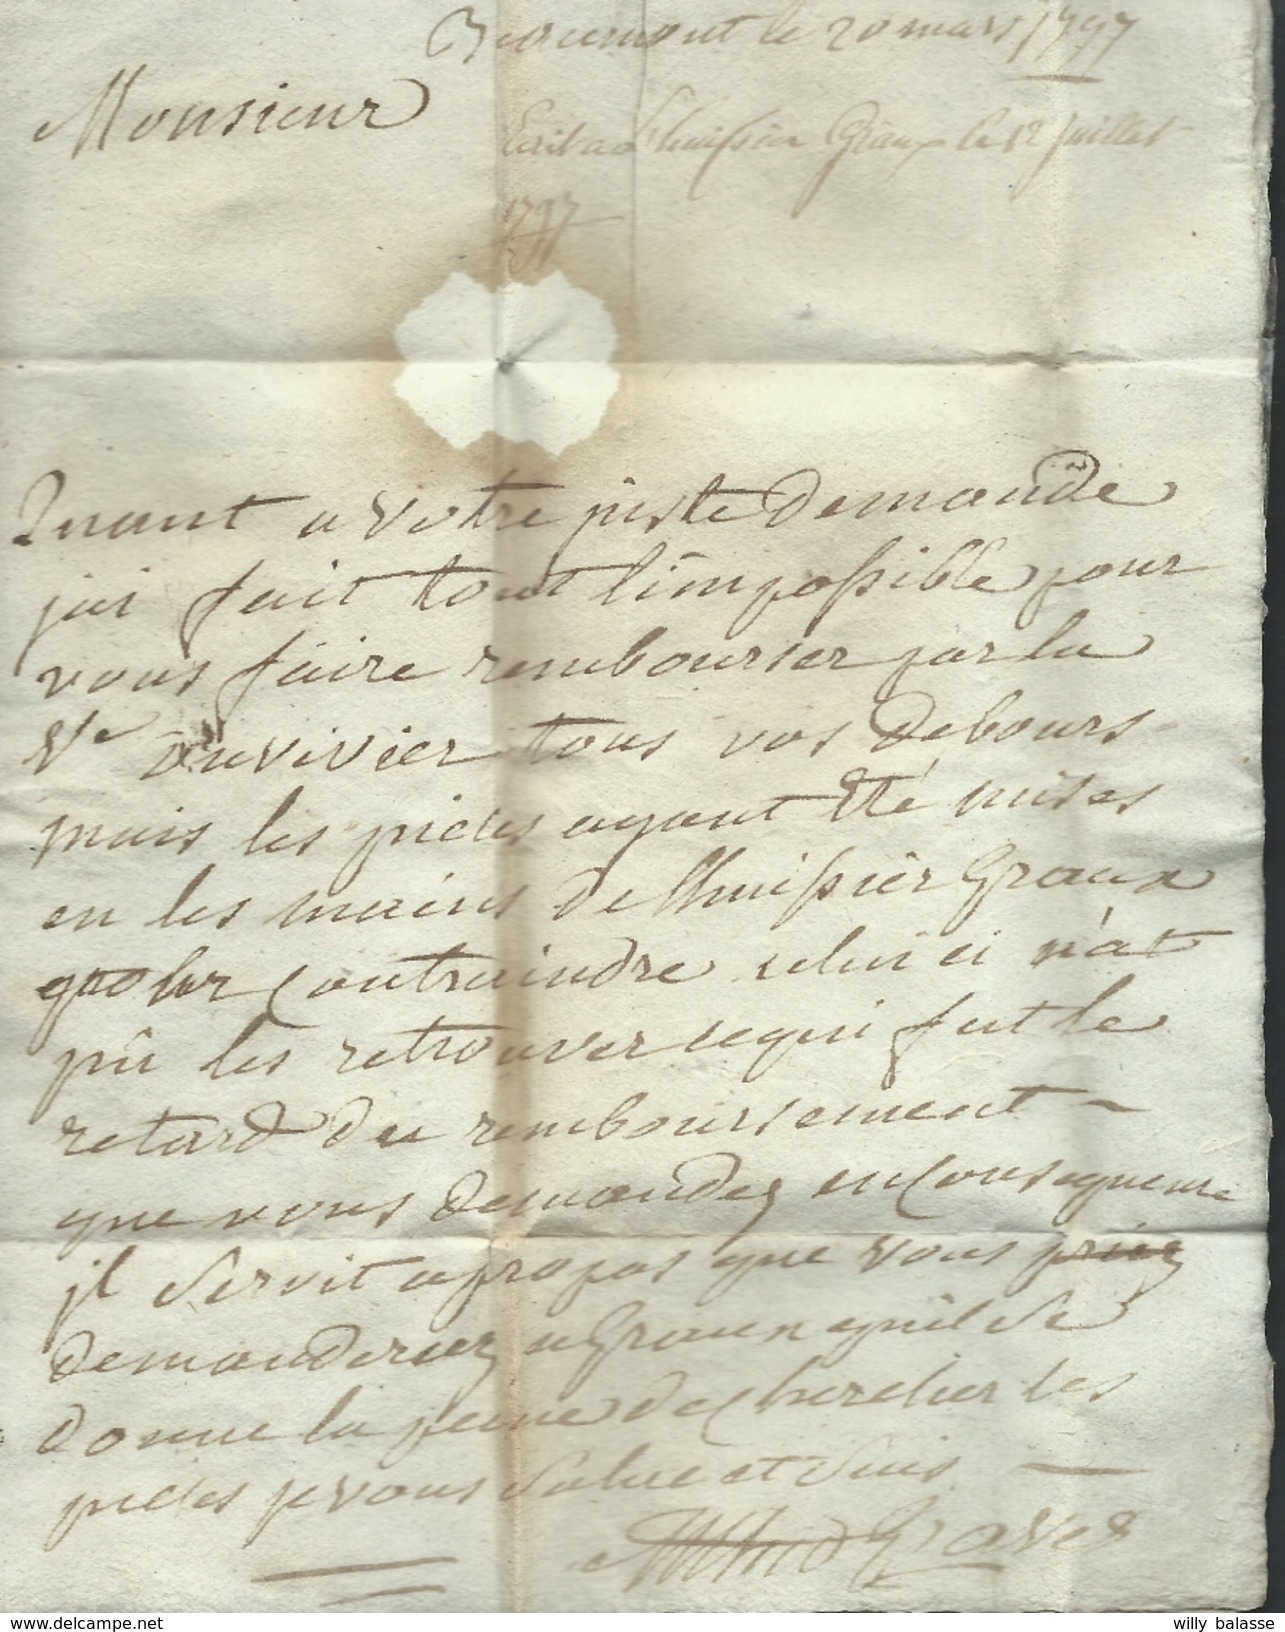 Beaumont le 20 mars 1797
Monsieur
Ecrit a L'huissier Graux le 12 juillet
1797
Quant a votre juste demande
jai fait tout limpossible pour
vous faire rembourser par la
Ve ouvivier tous vos debours
mais les pieces ayant été mises
en les mains de lhuissier Graux
contraindre celui ci n'at
pû les retrouver ce qui fut le
retard du remboursement
que vous demandez en consequence
jl serait apropos que vous priez
demanderiez a Graux qu'il se
donne la peine de chercher les
pieces je vous salue et suis
willy balasse